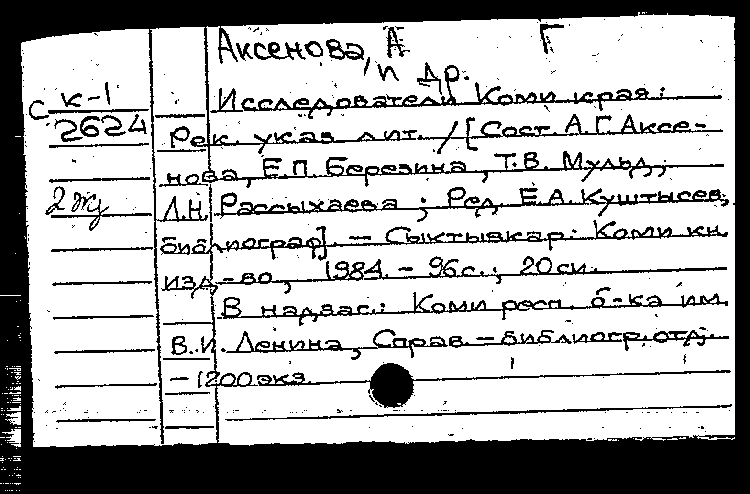 Аксенова, А Г
и др.
с к-1
2624
Исследователи Коми края:
Рек. указ. лит. / [Сост. А.Г. Аксе-
нова, Е.П. Березина, Т.В. Мульд,
2 экз
Л.Н. Рассыхаева ; Ред. Е.А. Куштысев,
библиограф]. – Сыктывкар: Коми кн.
изд-во, 1984. – 96 с. ; 20 см.
В надзаг.: Коми респ. б-ка им.
В.И. Ленина, Справ.-библиогр. отд.
– 1200 экз.